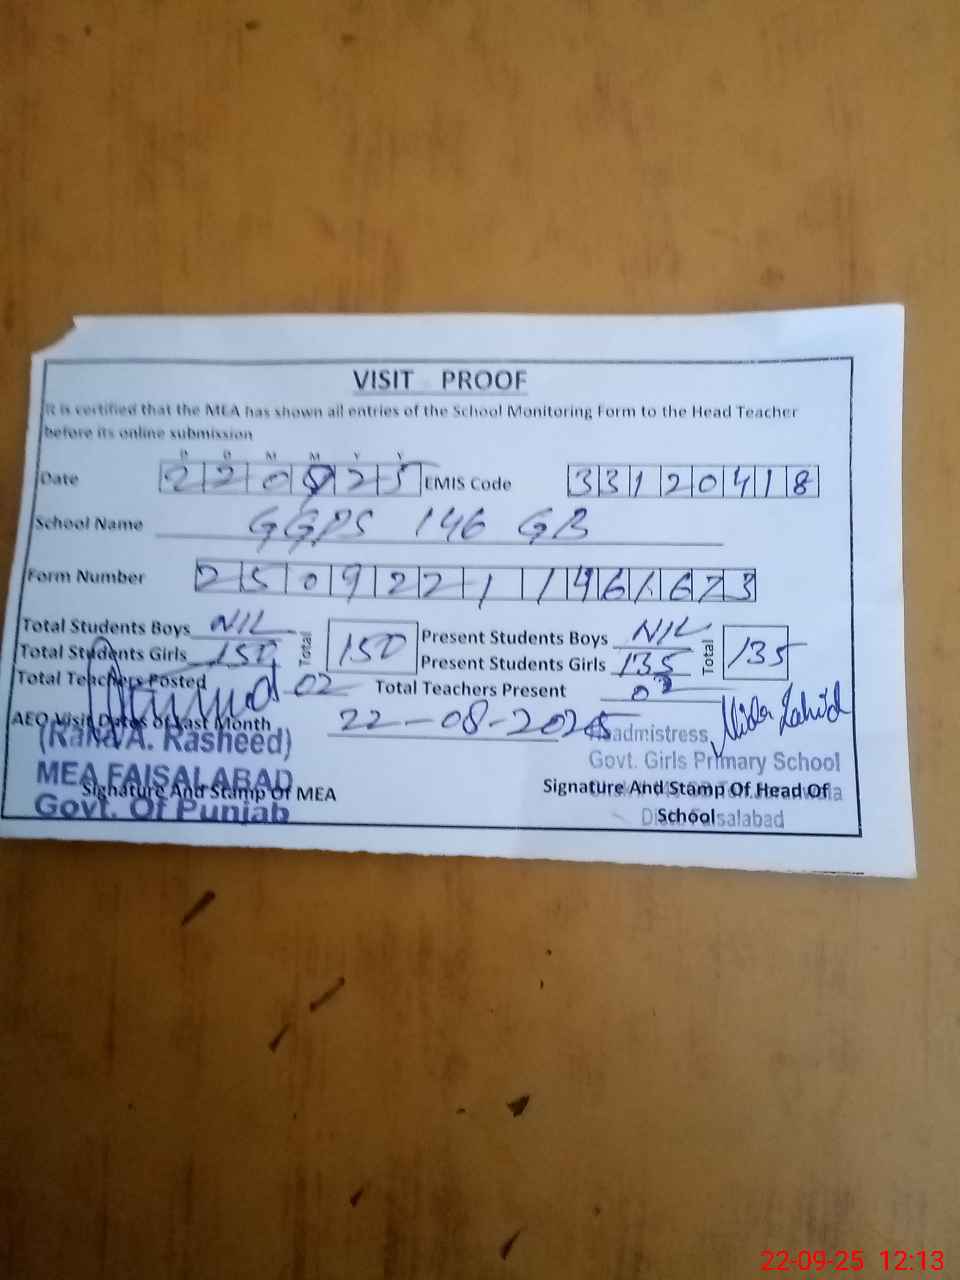 VISIT PROOF
It is certified that the MEA has shown all entries of the School Monitoring Form to the Head Teacher
before its online submission
D D M M Y Y
Date 220925 EMIS Code 33120418
School Name GGPS 146 GB
Form Number
Total Students Boys NIL Total 150 Present Students Boys NIL Total 135
Total Students Girls 150 Present Students Girls 135
Total Teachers Posted 02 Total Teachers Present 02
AEO Visit Dates of Last Month 22-08-2025
(Rana A. Rasheed)
MEA FAISALABAD
Govt. Of Punjab
Signature And Stamp Of MEA
Nida Zahid
Headmistress
Govt. Girls Primary School
Signature And Stamp Of Head Of
School
Faisalabad
22-09-25 12:13